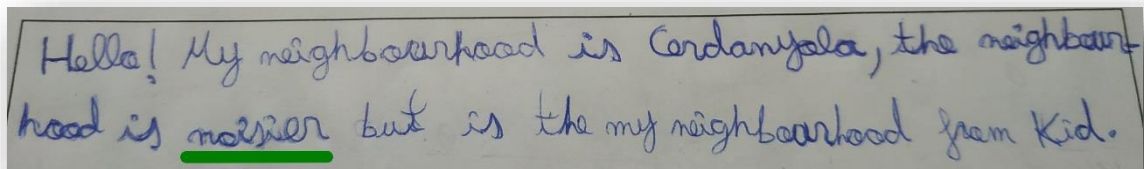 Hello! My neighbourhood is Cerdanyola, the neighbour-
hood is noisier but is the my neighbourhood from Kid.